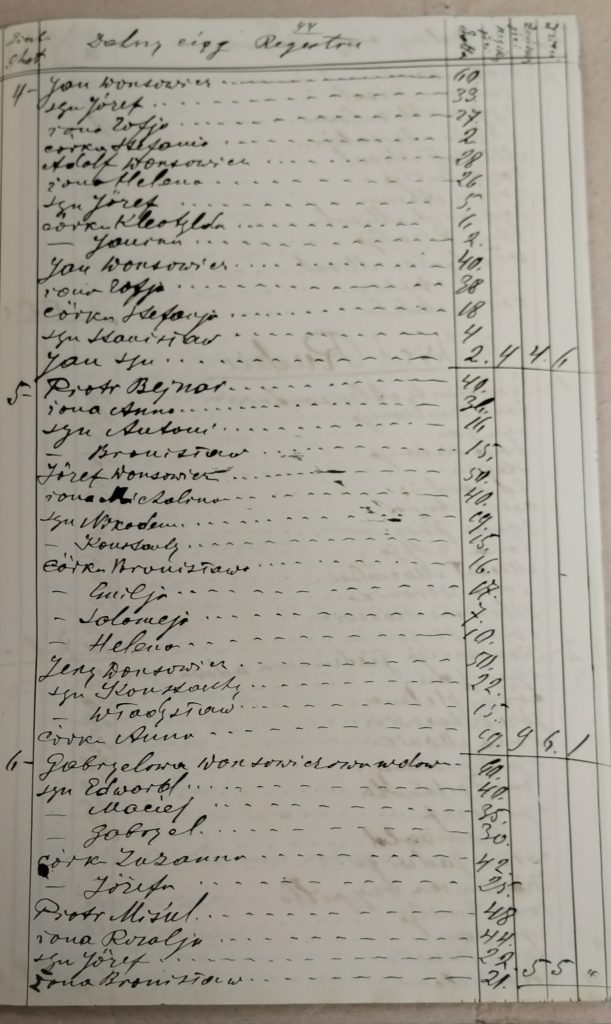 44
Dalszy ciąg Regestru
4- Jan Wonsowicz 60
syn Józef 33
żona Zofja 27
córka Stefania 2
Adolf Wonsowicz 28
żona Helena 26
syn Józef 5
córka Kleotylda
— Janina 2.
Jan Wonsowicz 40.
żona Zofja 38
córka Stefanja 18
syn Stanisław 4
Jan syn 2. 4 4 6
5- Piotr Bejnar 40.
żona Anna
syn Antoni
— Bronisław 15.
Józef Wonsowicz 50.
żona Michalina 40.
syn Nikodem 19.
— Konstanty 15.
córka Bronisława 16.
— Emilja
— Salomeja 7.
— Helena 10.
Jerzy Wonsowicz 50.
syn Konstanty 22.
— Władysław 15.
córka Anna 19. 9 6. 1
6- Gabryelowa Wonsowiczowa wdowa 60.
syn Edward 40.
— Maciej 35.
— Gabryel. 30.
córk Zuzanna 42.
— Józefa 25.
Piotr Misiul. 48
żona Rozalja 44.
syn Józef 22
żona Bronisława 21. 5 5 "